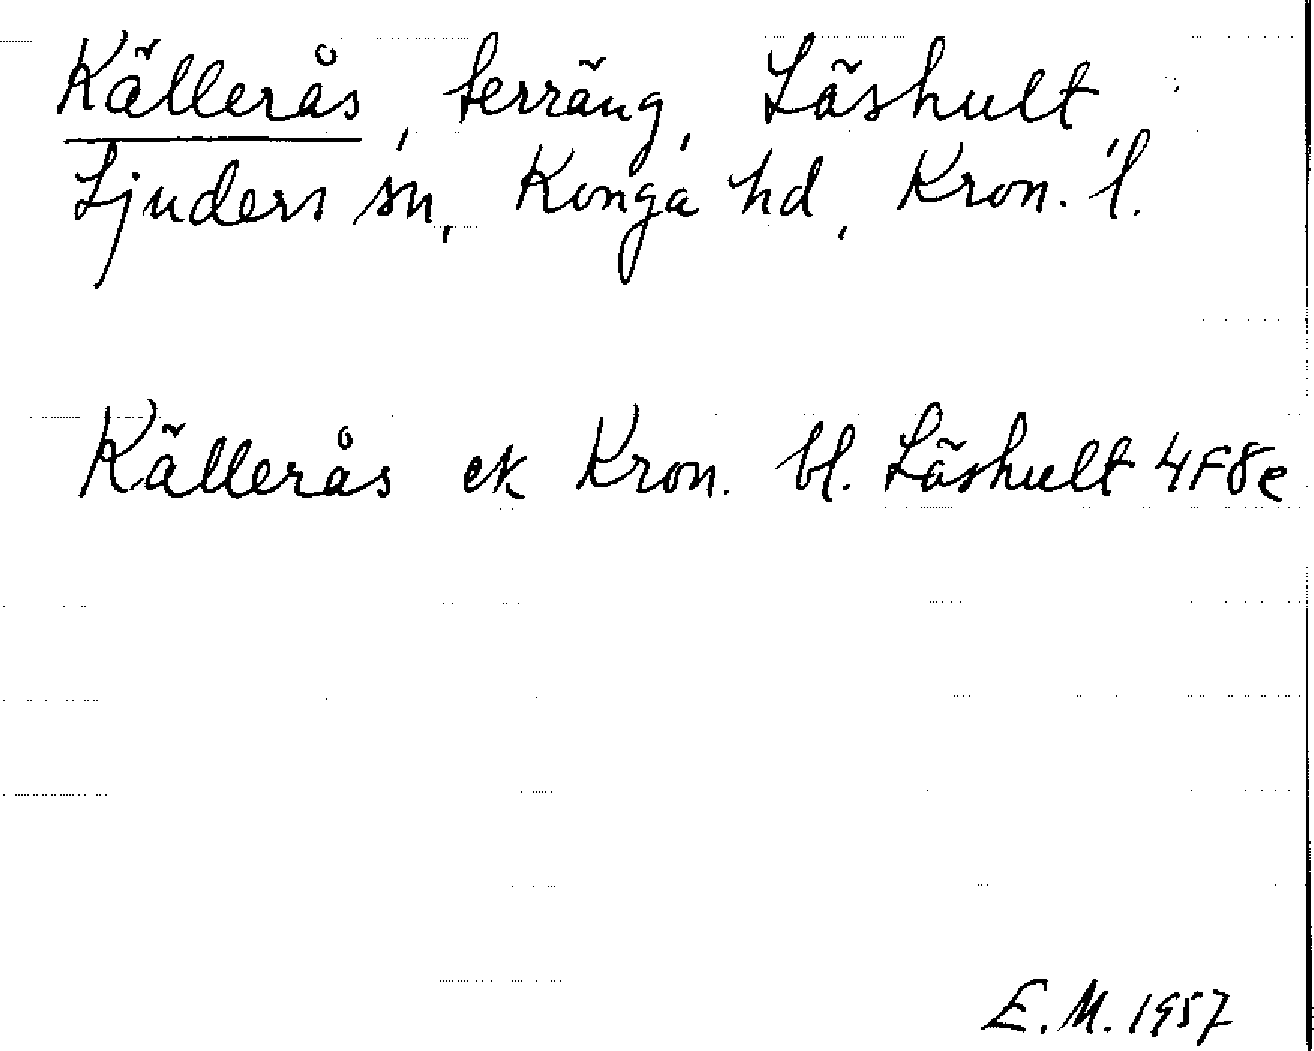 Källerås, terräng, Läshult,
Ljuders sn, Konga hd, Kron. l.
Källerås ek Kron. bl. Läshult 4F8e
E.M. 1957